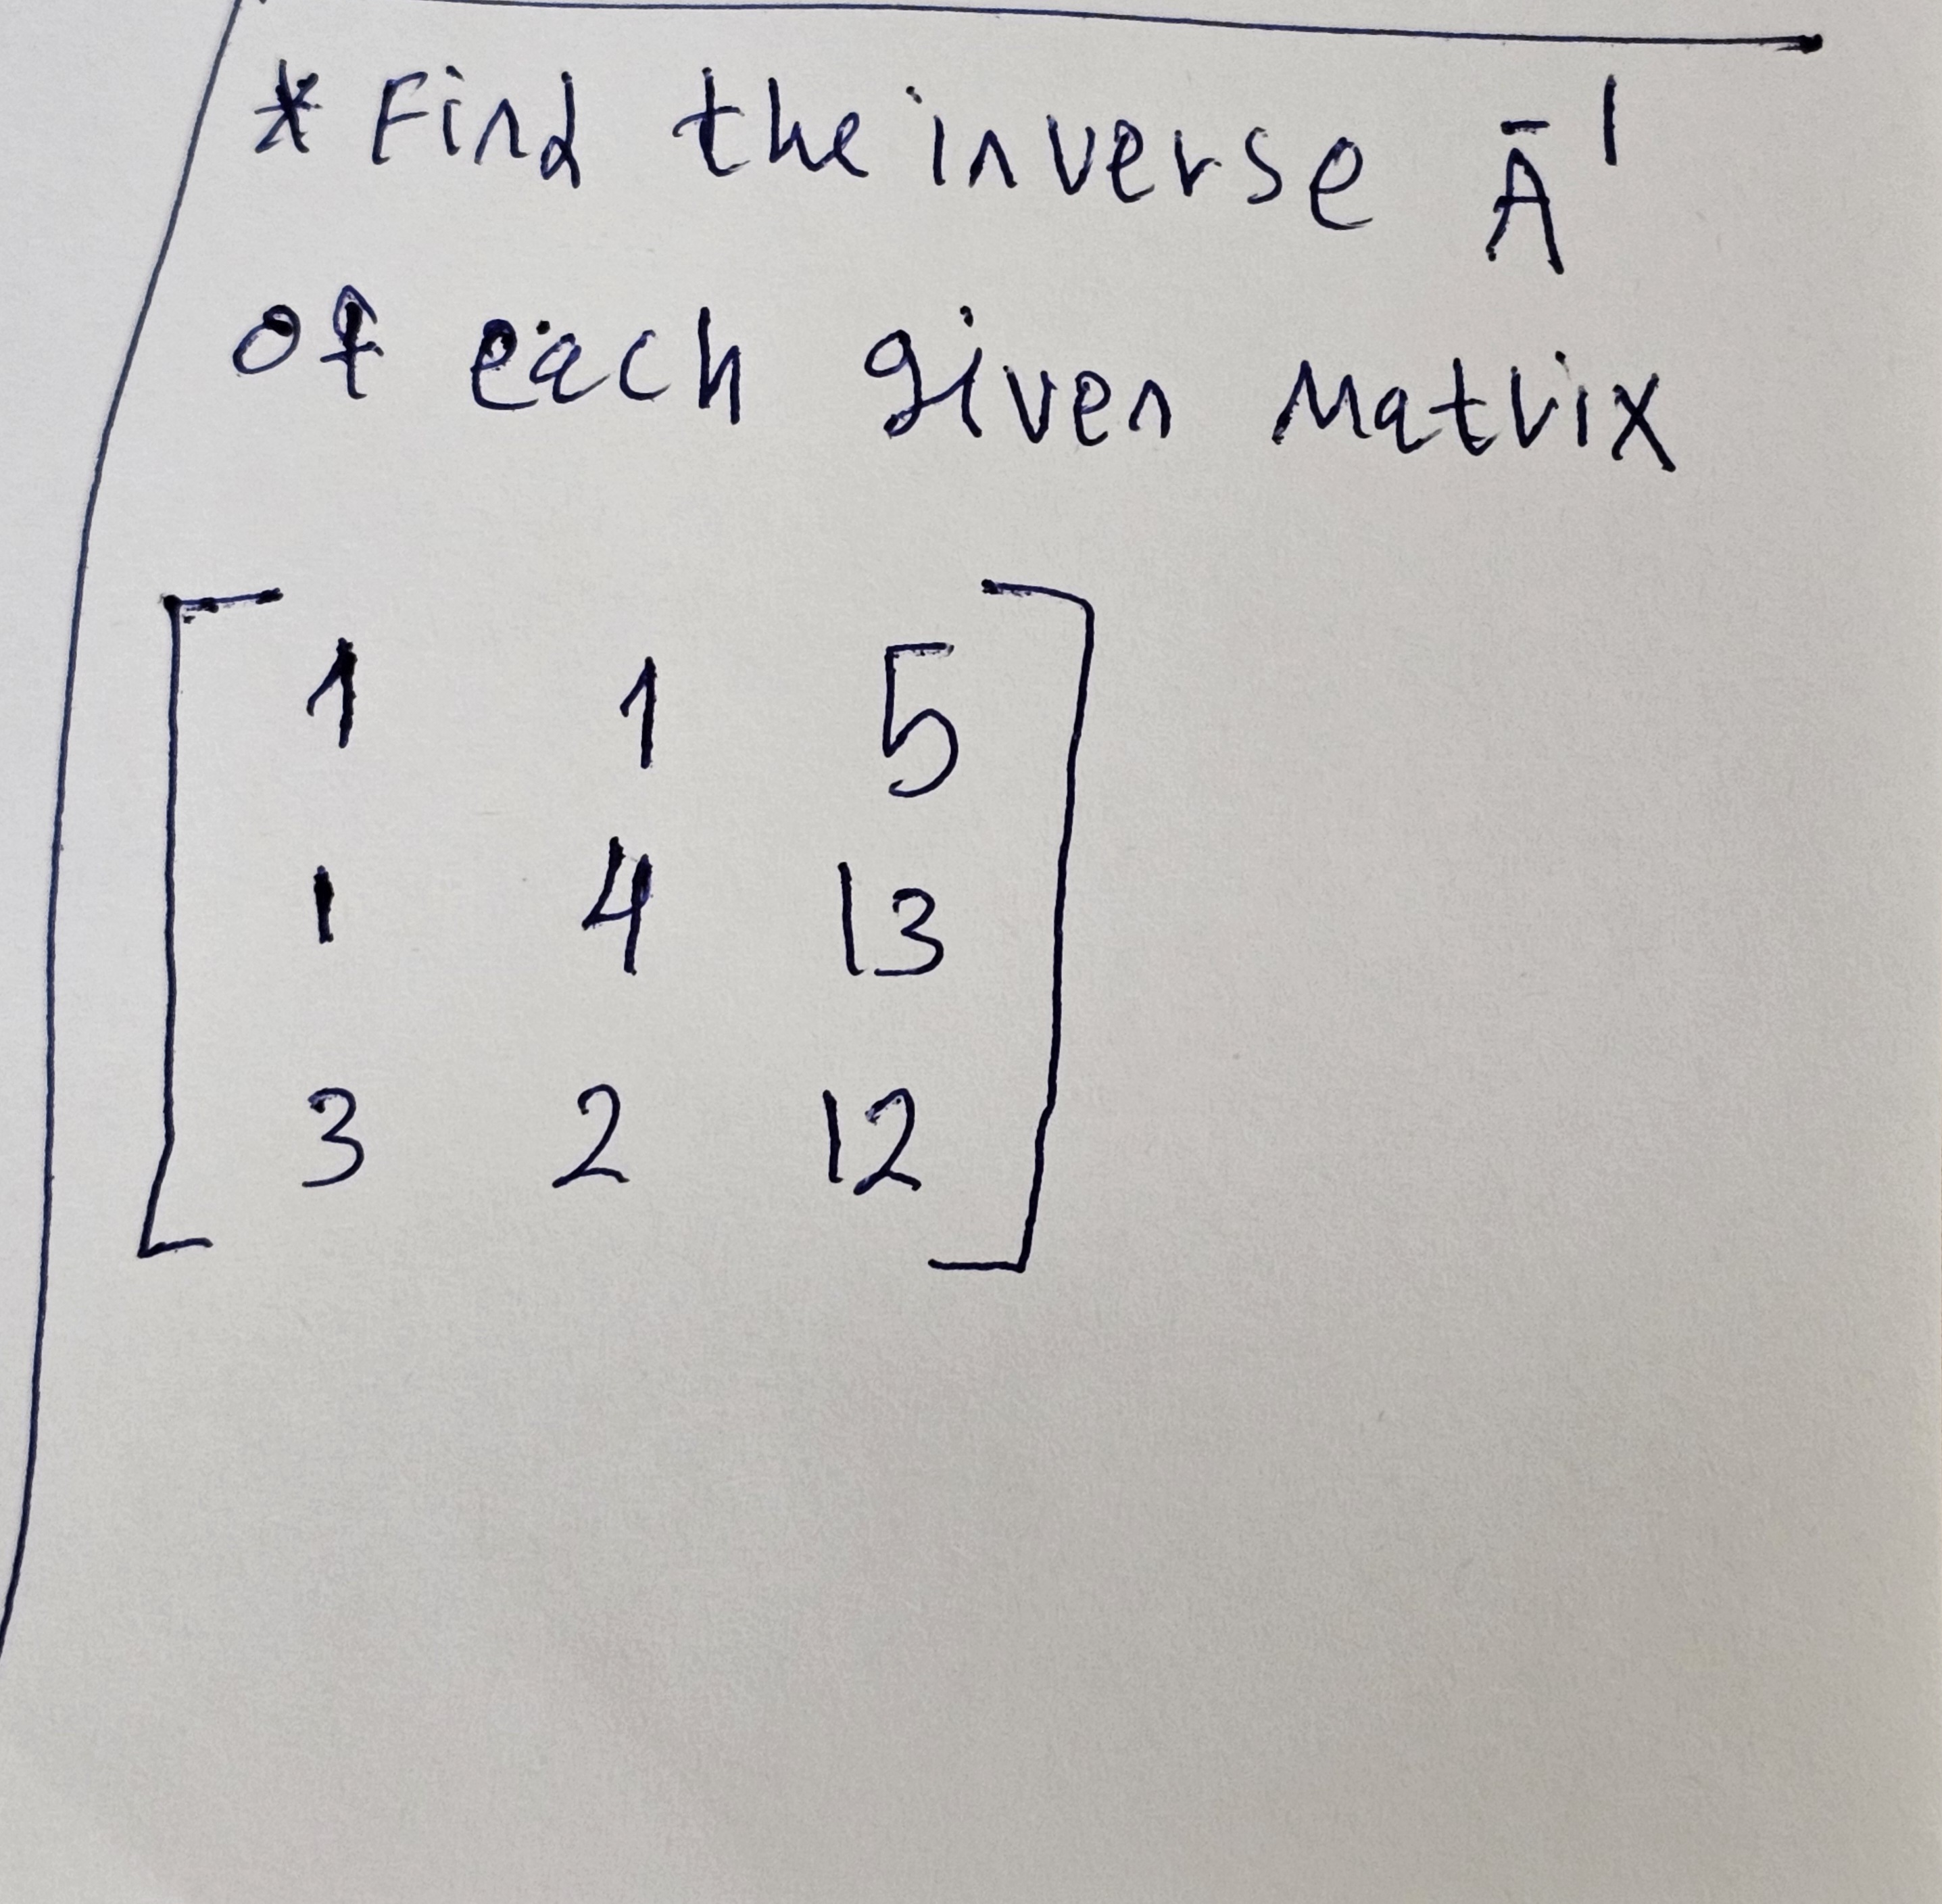 * Find the inverse A⁻¹
of each given Matrix
1 1 5
1 4 13
3 2 12